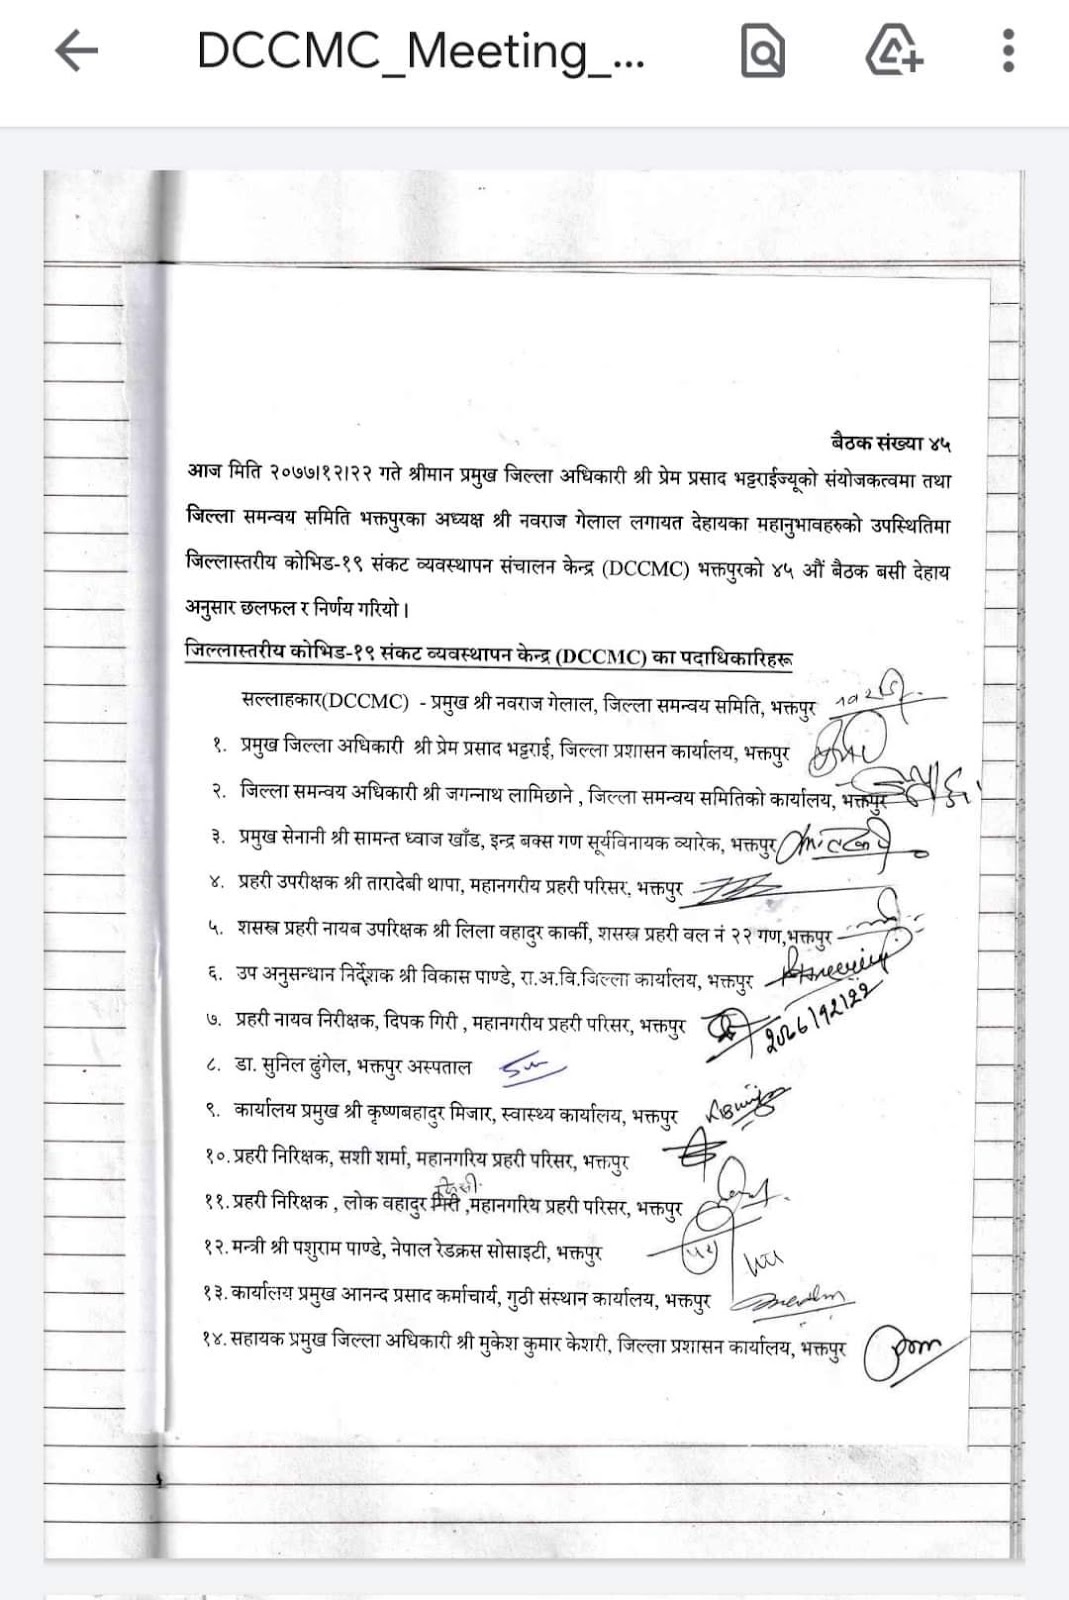 DCCMC_Meeting_...
बैठक संख्या ४५
आज मिति २०७७।१२।२२ गते श्रीमान प्रमुख जिल्ला अधिकारी श्री प्रेम प्रसाद भट्टराईज्यूको संयोजकत्वमा तथा
जिल्ला समन्वय समिति भक्तपुरका अध्यक्ष श्री नवराज गेलाल लगायत देहायका महानुभावहरुको उपस्थितिमा
जिल्लास्तरीय कोभिड-१९ संकट व्यवस्थापन संचालन केन्द्र (DCCMC) भक्तपुरको ४५ औं बैठक बसी देहाय
अनुसार छलफल र निर्णय गरियो ।
जिल्लास्तरीय कोभिड-१९ संकट व्यवस्थापन केन्द्र (DCCMC) का पदाधिकारिहरू
सल्लाहकार(DCCMC) - प्रमुख श्री नवराज गेलाल, जिल्ला समन्वय समिति, भक्तपुर
१. प्रमुख जिल्ला अधिकारी श्री प्रेम प्रसाद भट्टराई, जिल्ला प्रशासन कार्यालय, भक्तपुर
२. जिल्ला समन्वय अधिकारी श्री जगन्नाथ लामिछाने , जिल्ला समन्वय समितिको कार्यालय, भक्तपुर
३. प्रमुख सेनानी श्री सामन्त ध्वाज खाँड, इन्द्र बक्स गण सूर्यविनायक व्यारेक, भक्तपुर
४. प्रहरी उपरीक्षक श्री तारादेबी थापा, महानगरीय प्रहरी परिसर, भक्तपुर
५. शसस्त्र प्रहरी नायब उपरिक्षक श्री लिला वहादुर कार्की, शसस्त्र प्रहरी वल नं २२ गण,भक्तपुर
६. उप अनुसन्धान निर्देशक श्री विकास पाण्डे, रा.अ.वि.जिल्ला कार्यालय, भक्तपुर
७. प्रहरी नायव निरीक्षक, दिपक गिरी , महानगरीय प्रहरी परिसर, भक्तपुर २०७७/१२/२२
८. डा. सुनिल ढुंगेल, भक्तपुर अस्पताल
९. कार्यालय प्रमुख श्री कृष्णबहादुर मिजार, स्वास्थ्य कार्यालय, भक्तपुर
१०. प्रहरी निरिक्षक, सशी शर्मा, महानगरिय प्रहरी परिसर, भक्तपुर
११. प्रहरी निरिक्षक , लोक वहादुर गिरी ,महानगरिय प्रहरी परिसर, भक्तपुर
१२. मन्त्री श्री पशुराम पाण्डे, नेपाल रेडक्रस सोसाइटी, भक्तपुर
१३. कार्यालय प्रमुख आनन्द प्रसाद कर्माचार्य, गुठी संस्थान कार्यालय, भक्तपुर
१४. सहायक प्रमुख जिल्ला अधिकारी श्री मुकेश कुमार केशरी, जिल्ला प्रशासन कार्यालय, भक्तपुर